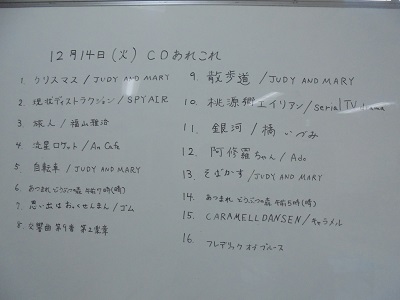 12月14日(火) CDあれこれ
1. クリスマス / JUDY AND MARY
2. 現状ディストラクション / SPYAIR
3. 旅人 / 福山雅治
4. 流星ロケット / An Cafe
5. 自転車 / JUDY AND MARY
6. あつまれどうぶつの森 午前7時(晴)
7. 思い出はおっくせんまん / ゴム
8. 交響曲第9番 第2楽章
9. 散歩道 / JUDY AND MARY
10. 桃源郷エイリアン / serial TV drama
11. 銀河 / 橘いづみ
12. 阿修羅ちゃん / Ado
13. そばかす / JUDY AND MARY
14. あつまれどうぶつの森 午前5時(晴)
15. CARAMELLDANSEN / キャラメル
16. フレデリック オブ ブルース